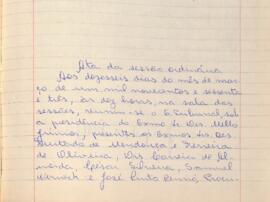 Ata da sessão ordinária
Aos dezesseis dias do mês de mar-
ço de um mil novecentos e sessenta
e três, às dez horas, na sala das
sessões, reuniu-se o E. Tribunal, sob
a presidência do Exmo Sr. Des. Mello
Júnior, presentes os Exmos Srs. Des.
Furtado de Mendonça e Ferreira
de Oliveira, Drs. Correia de Al-
meida, César Silveira, Samuel
e José Pinto Renó, Procu-